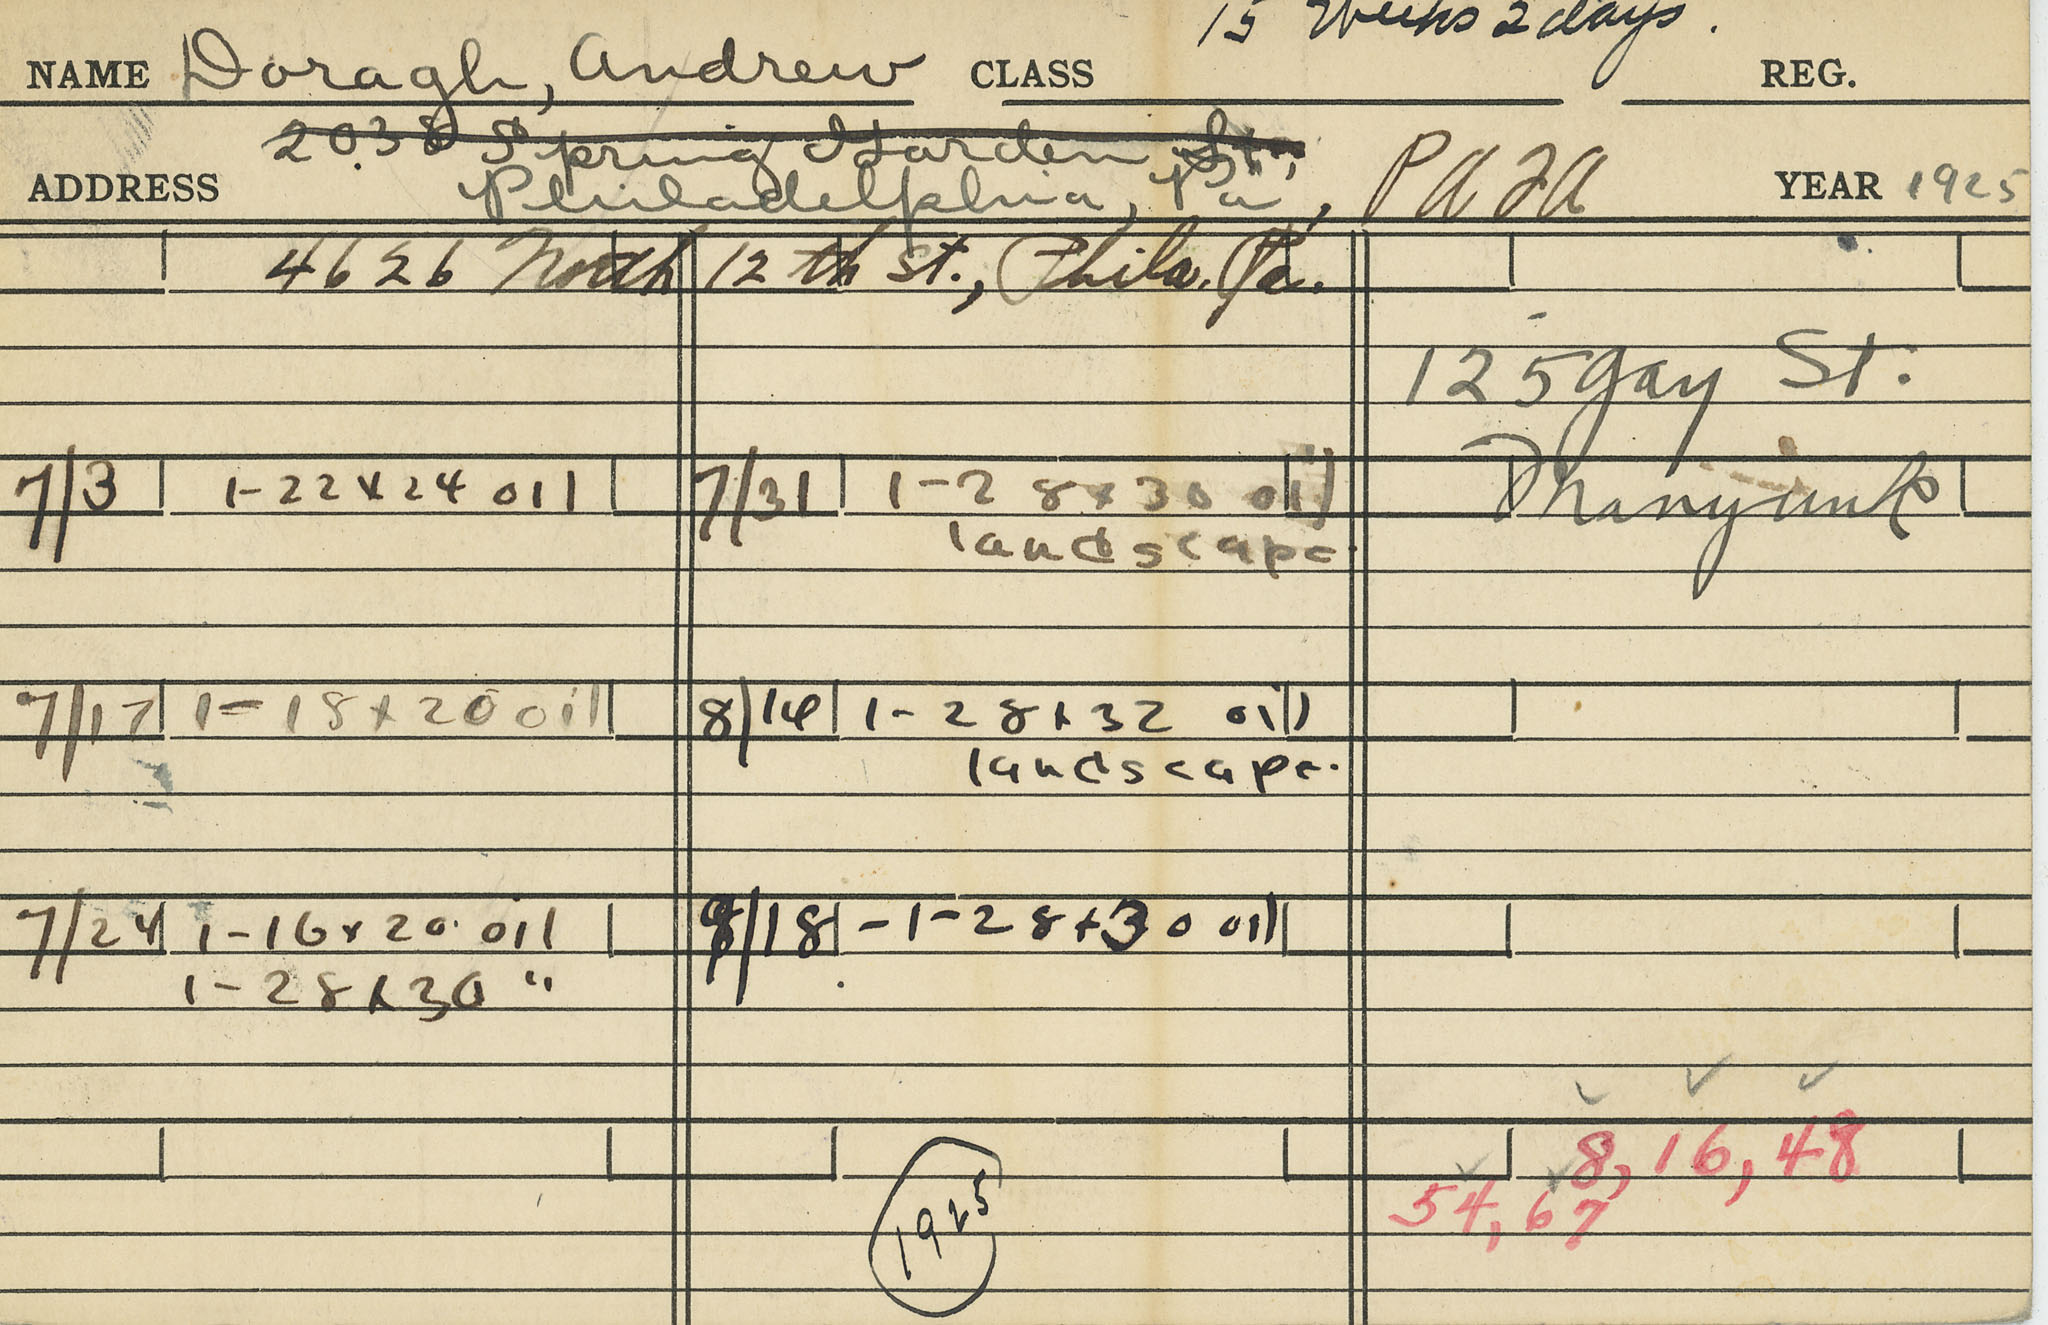 15 Weeks 2 days.
NAME Doragh, Andrew CLASS REG.
2038 Spring Garden St.,
ADDRESS Philadelphia, Pa., PAFA YEAR 1925
4626 North 12th St., Phila. Pa.
125 Gay St.
Manyunk
7/3 1-22x24 oil
7/17 1-18x20 oil
7/24 1-16x20 oil
1-28x30 "
7/31 1-28x30 oil
landscape.
8/14 1-28x32 oil
landscape.
9/18 -1-28x30 oil
1925
8, 16, 48
54, 67